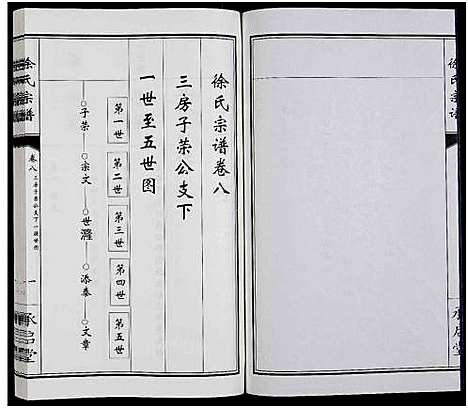 徐氏宗谱
徐氏宗谱卷八
三房子荣公支下
一世至五世图
第一世
第二世
第三世
第四世
第五世
子荣
宗文
世滩
添泰
文章
徐氏宗谱
卷八
三房子荣公支下一
一